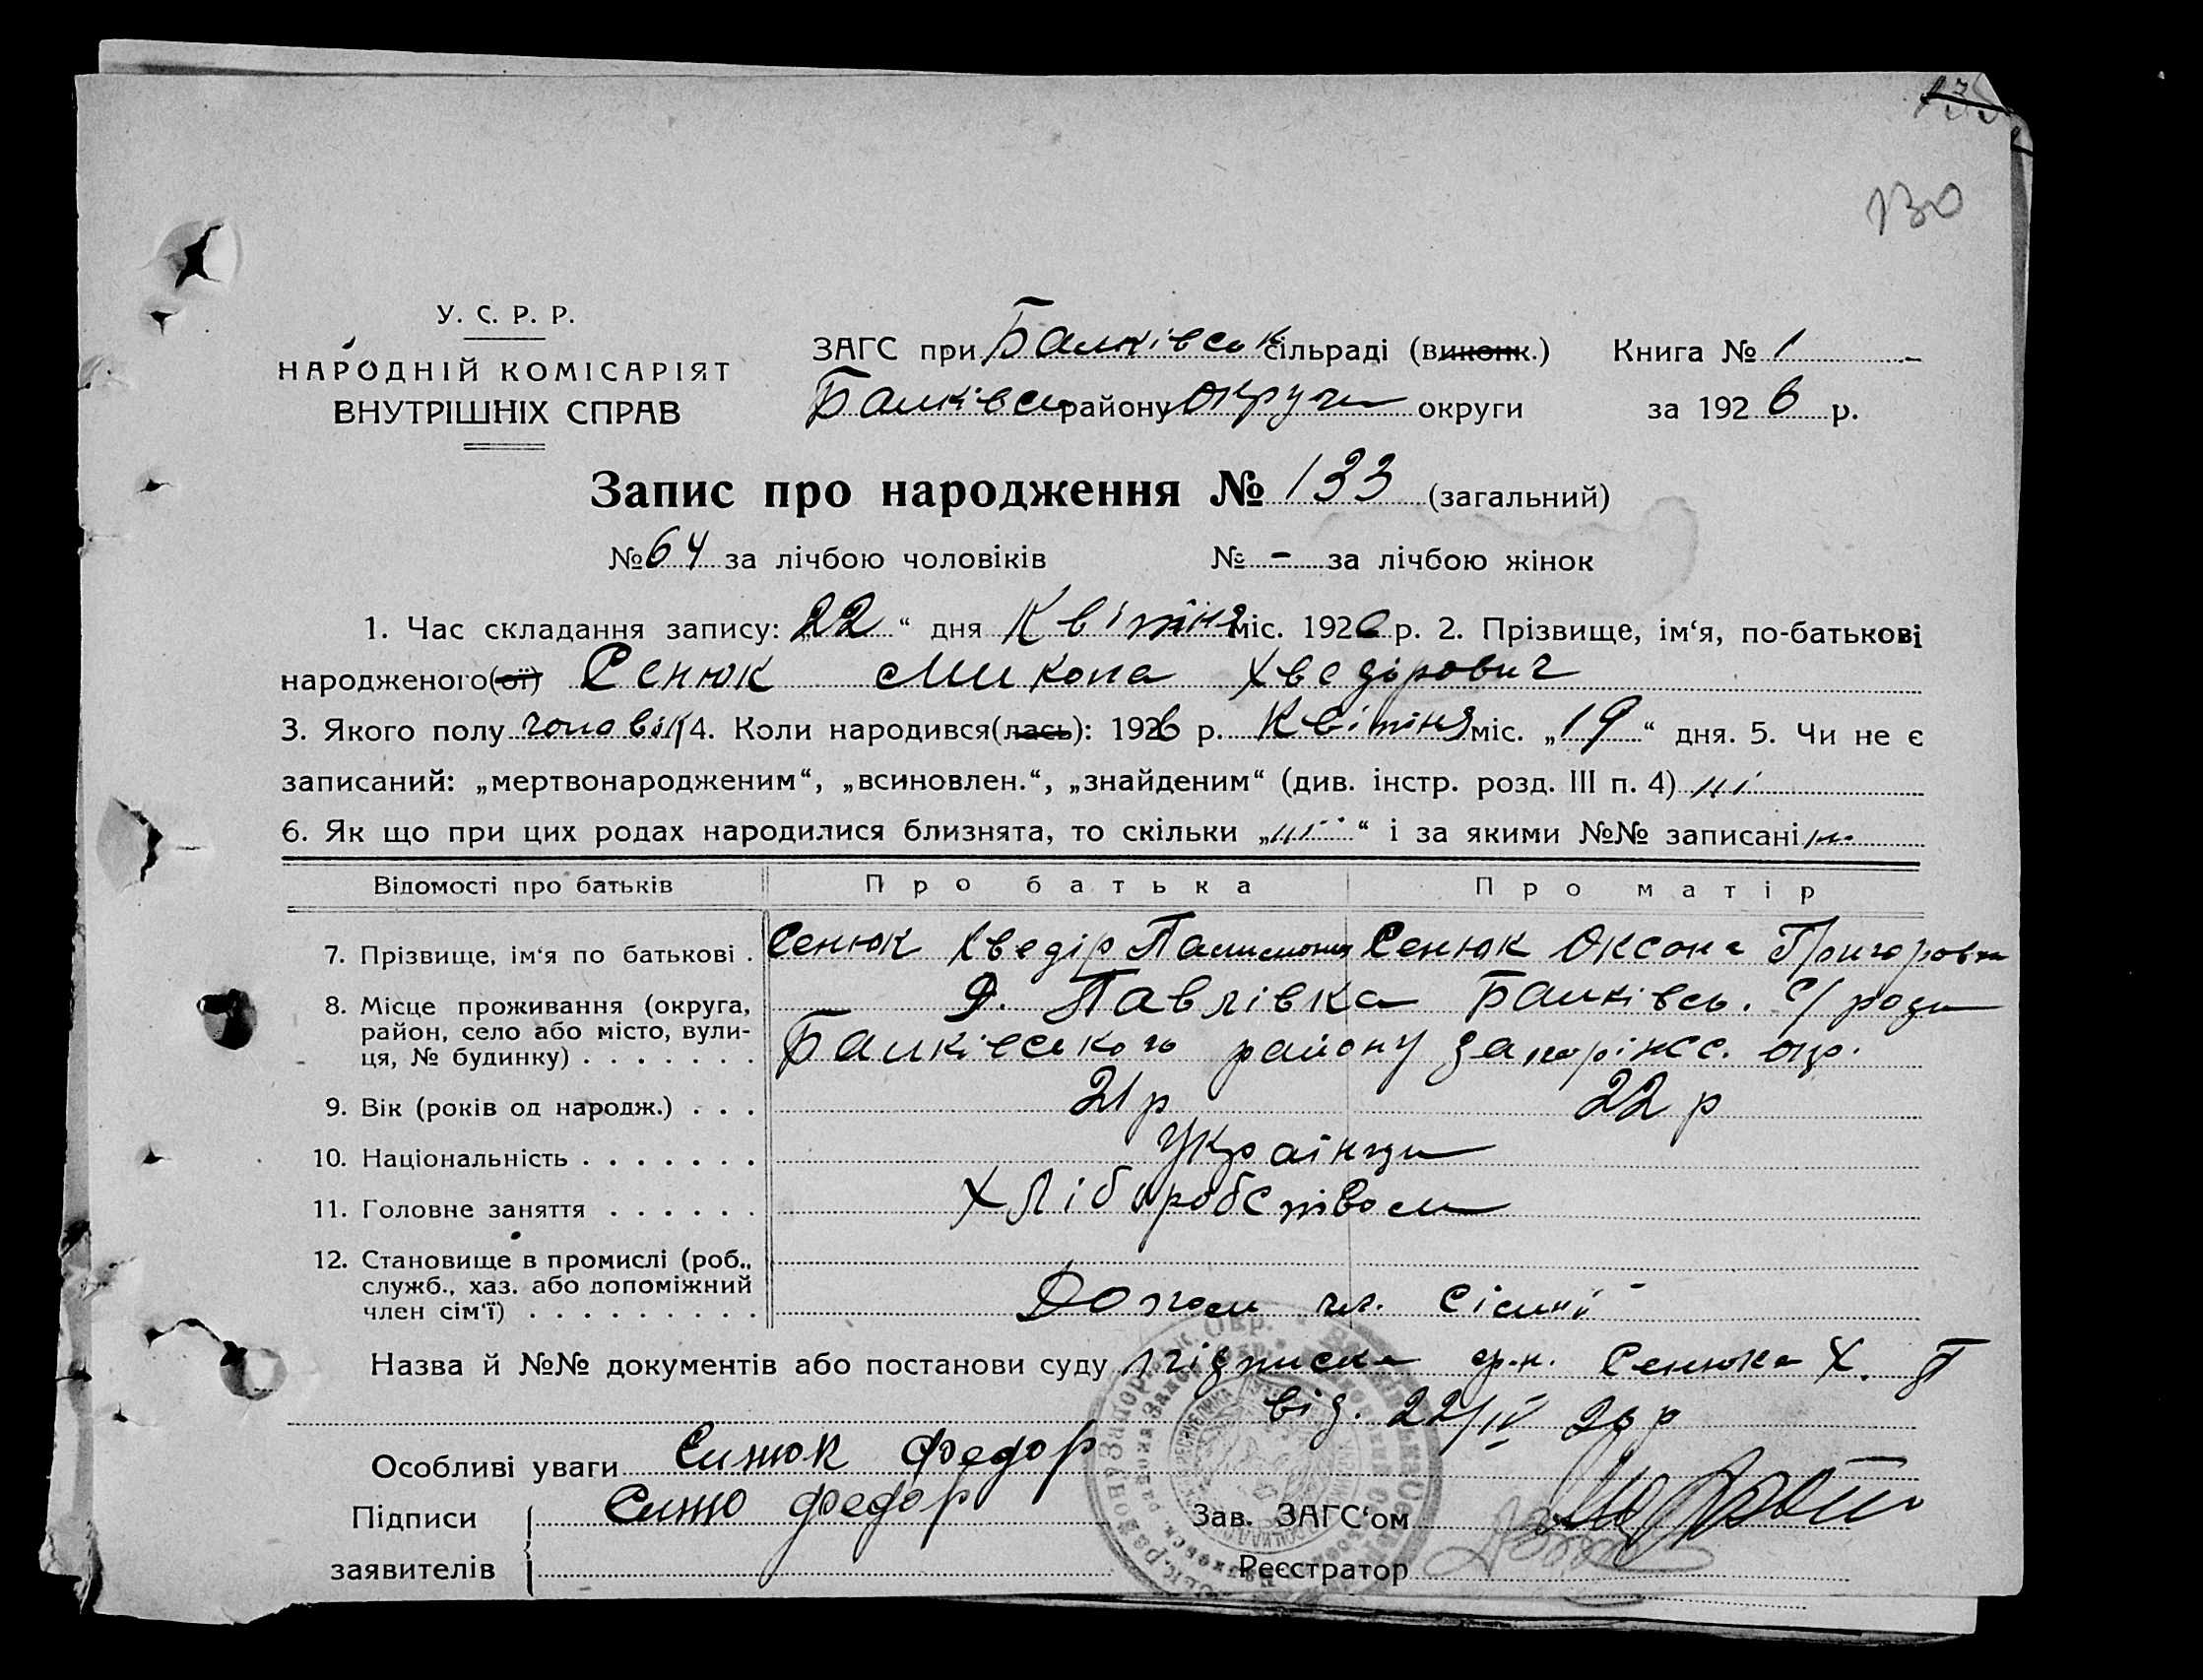 130
У. С. Р. Р.
НАРОДНІЙ КОМІСАРІЯТ
ВНУТРІШНІХ СПРАВ
ЗАГС при Балківськ сільраді (виконк.) Книга № 1
Балківськ району округи округи за 1926 р.
Запис про народження № 133 (загальний)
№ 64 за лічбою чоловіків № - за лічбою жінок
1. Час складання запису: 22 “ дня Квітня міс. 1926 р. 2. Прізвище, ім‘я, по-батькові
народженого(ої) Сенюк Микола Хведірович
3. Якого полу чоловік 4. Коли народився(лась): 1926 р. Квітня міс. „19“ дня. 5. Чи не є
записаний: „мертвонародженим“, „всиновлен.“, „знайденим“ (див. інстр. розд. III п. 4) ні
6. Як що при цих родах народилися близнята, то скільки „ні“ і за якими №№ записані
Відомості про батьків Про батька Про матір
7. Прізвище, ім‘я по батькові . Сенюк Хведір Сенюк Оксана Григоровна
8. Місце проживання (округа,
район, село або місто, вули-
ця, № будинку) . . . . . . .
Д. Павлівка Балківсь. с/ради
Балківського району Запоріжс. окр.
9. Вік (років од народж.) . . . 21 р 22 р
10. Національність . . . . . . . Українци
11. Головне заняття . . . . . . Хліборобством
12. Становище в промислі (роб.,
служб., хаз. або допоміжний
член сім‘ї) . . . . . . . . . Допом чл. сімиї
Назва й №№ документів або постанови суду підписка гр-н. Сенюка Х. П
від. 22/IV 26 р
Особливі уваги Синюк Федор
Підписи Синю Федор Зав. ЗАГС‘ом
заявителів Реєстратор